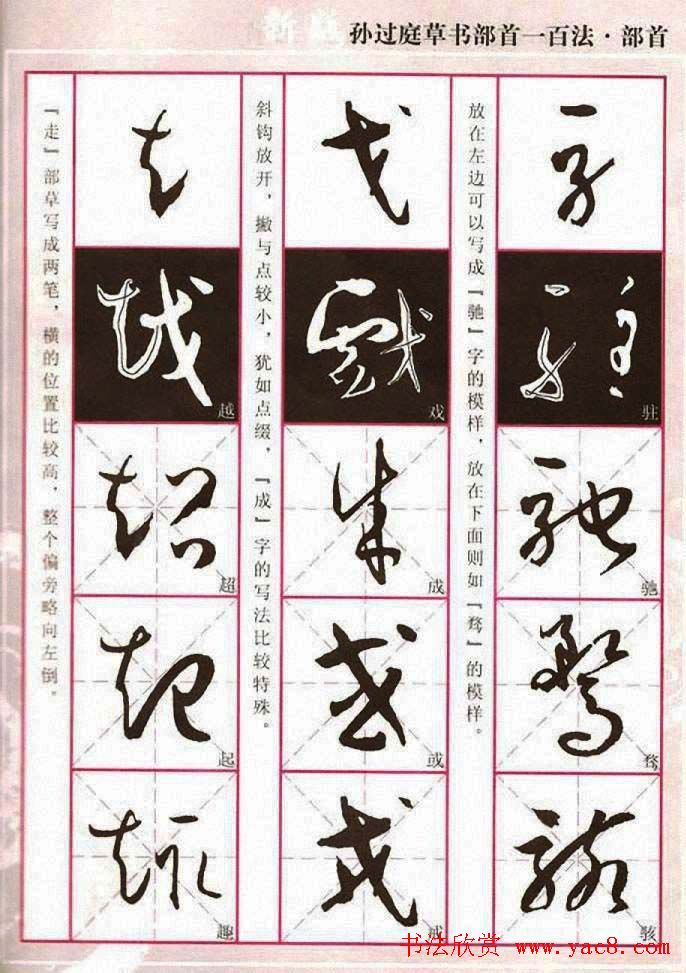 孙过庭草书部首一百法·部首
驻
驰
骛
骇
放在左边可以写成「驰」字的模样，放在下面则如「骛」的模样。
戈
戏
成
或
斜钩放开，撇与点较小，犹如点缀，「成」字的写法比较特殊。
越
超
起
趣
「走」部草写成两笔，横的位置比较高，整个偏旁略向左倒。
书法欣赏 www.yac8.com